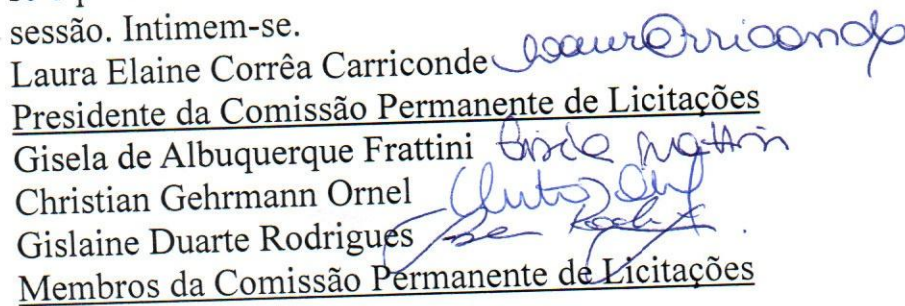 sessão. Intimem-se.
Laura Elaine Corrêa Carriconde
Presidente da Comissão Permanente de Licitações
Gisela de Albuquerque Frattini
Christian Gehrmann Ornel
Gislaine Duarte Rodrigues
Membros da Comissão Permanente de Licitações